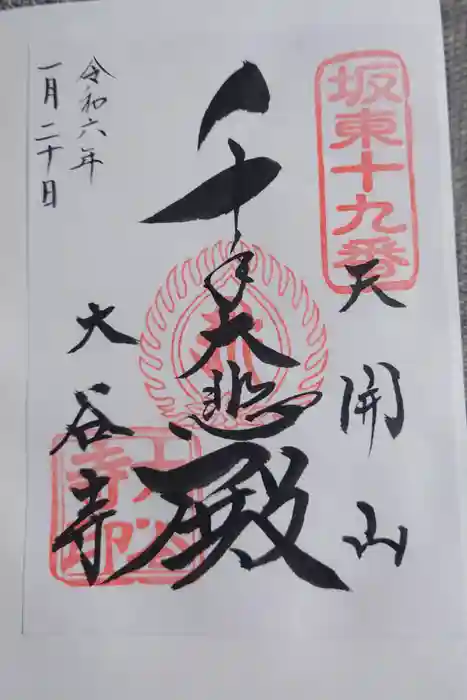 坂東十九番
天開山
千手大悲殿
大谷寺
大谷
寺印
令和六年
一月二十日